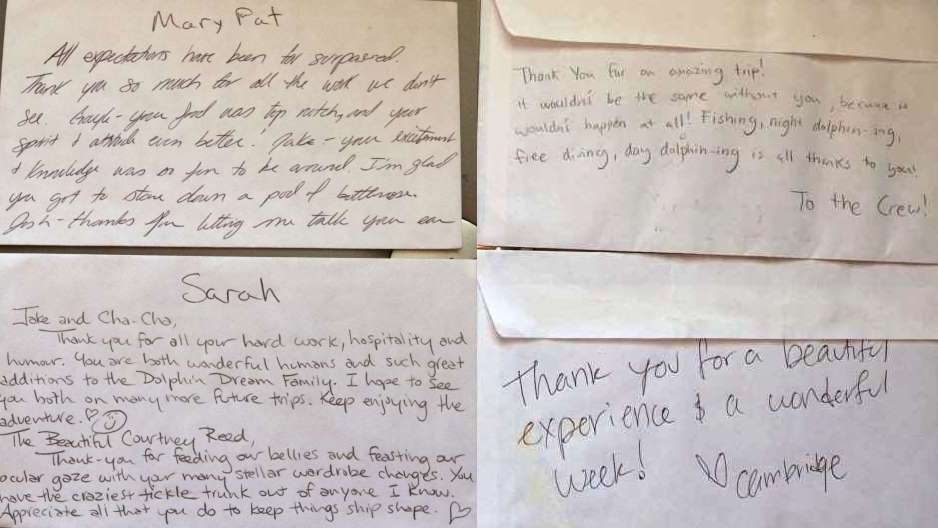 Mary Pat
All expectations have been far surpassed.
Thank you so much for all the work we don't
see. Gayle - your food was top notch, and your
spirit & attitude even better! Jake - your excitement
& knowledge was so fun to be around. I'm glad
you got to stare down a pod of bottlenose.
Josh - thanks for letting me talk your ear
Thank You for an amazing trip!
it wouldn't be the same without you, because it
wouldn't happen at all! Fishing, night dolphin-ing,
free diving, day dolphin-ing is all thanks to you!
To the Crew!
Sarah
Jake and Cha-Cha,
Thank you for all your hard work, hospitality and
humour. You are both wonderful humans and such great
additions to the Dolphin Dream Family. I hope to see
you both on many more future trips. Keep enjoying the
adventure.
The Beautiful Courtney Reed,
Thank-you for feeding our bellies and feasting our
ocular gaze with your many stellar wardrobe changes. You
have the craziest tickle trunk out of anyone I know.
Appreciate all that you do to keep things ship shape.
Thank you for a beautiful
experience & a wonderful
week!
Cambridge